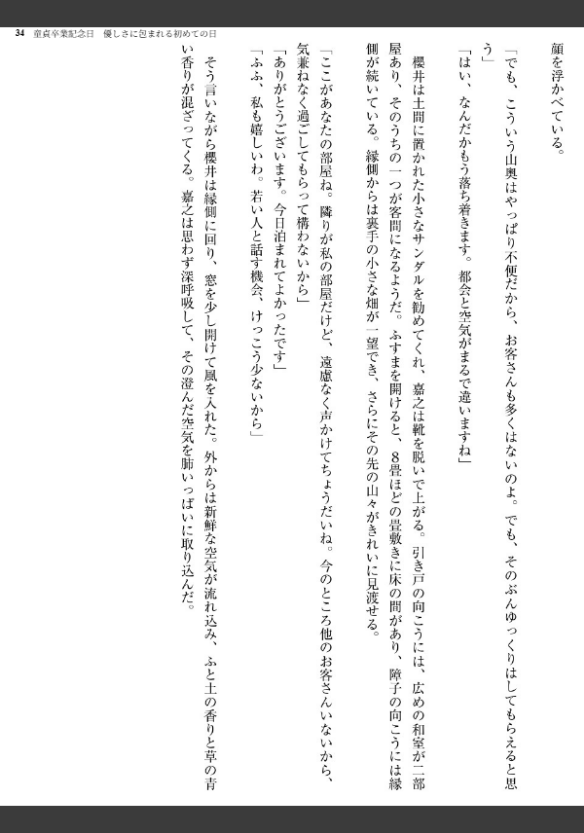 34 童貞卒業記念日　優しさに包まれる初めての日
顔を浮かべている。
「でも、こういう山奥はやっぱり不便だから、お客さんも多くはないのよ。でも、そのぶんゆっくりはしてもらえると思
う」
「はい、なんだかもう落ち着きます。都会と空気がまるで違いますね」
櫻井は土間に置かれた小さなサンダルを勧めてくれ、嘉之は靴を脱いで上がる。引き戸の向こうには、広めの和室が二部
屋あり、そのうちの一つが客間になるようだ。ふすまを開けると、８畳ほどの畳敷きに床の間があり、障子の向こうには縁
側が続いている。縁側からは裏手の小さな畑が一望でき、さらにその先の山々がきれいに見渡せる。
「ここがあなたの部屋ね。隣りが私の部屋だけど、遠慮なく声かけてちょうだいね。今のところ他のお客さんいないから、
気兼ねなく過ごしてもらって構わないから」
「ありがとうございます。今日泊まれてよかったです」
「ふふ、私も嬉しいわ。若い人と話す機会、けっこう少ないから」
そう言いながら櫻井は縁側に回り、窓を少し開けて風を入れた。外からは新鮮な空気が流れ込み、ふと土の香りと草の青
い香りが混ざってくる。嘉之は思わず深呼吸して、その澄んだ空気を肺いっぱいに取り込んだ。